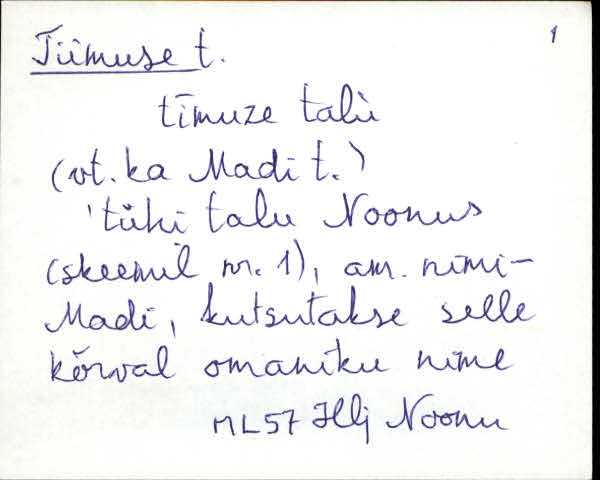 Tiimuse t. 1
tīmuze talù
(vt. ka Madi t.)
'tühi talu Noonus
(skeemil nr. 1), am. nimi-
Madi, kutsutakse selle
kõrval omaniku nime
ML57 Hlj Noonu